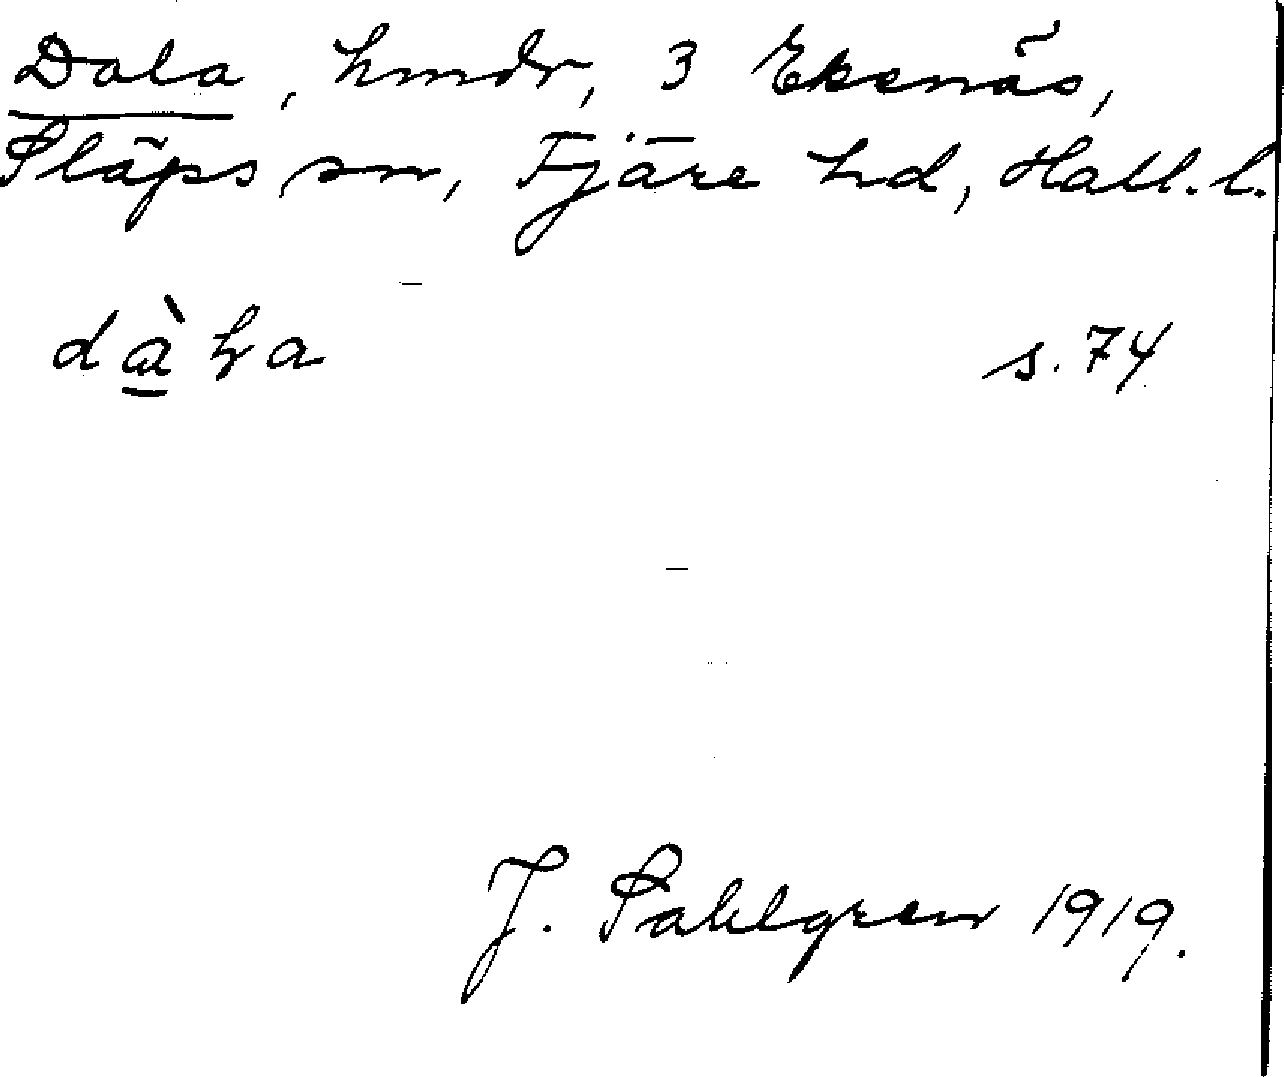 Dala, hmdr, 3 Ekenäs,
Släps sn, Fjäre hd, Hall. l.
s. 74
J. Sahlgren 1919.